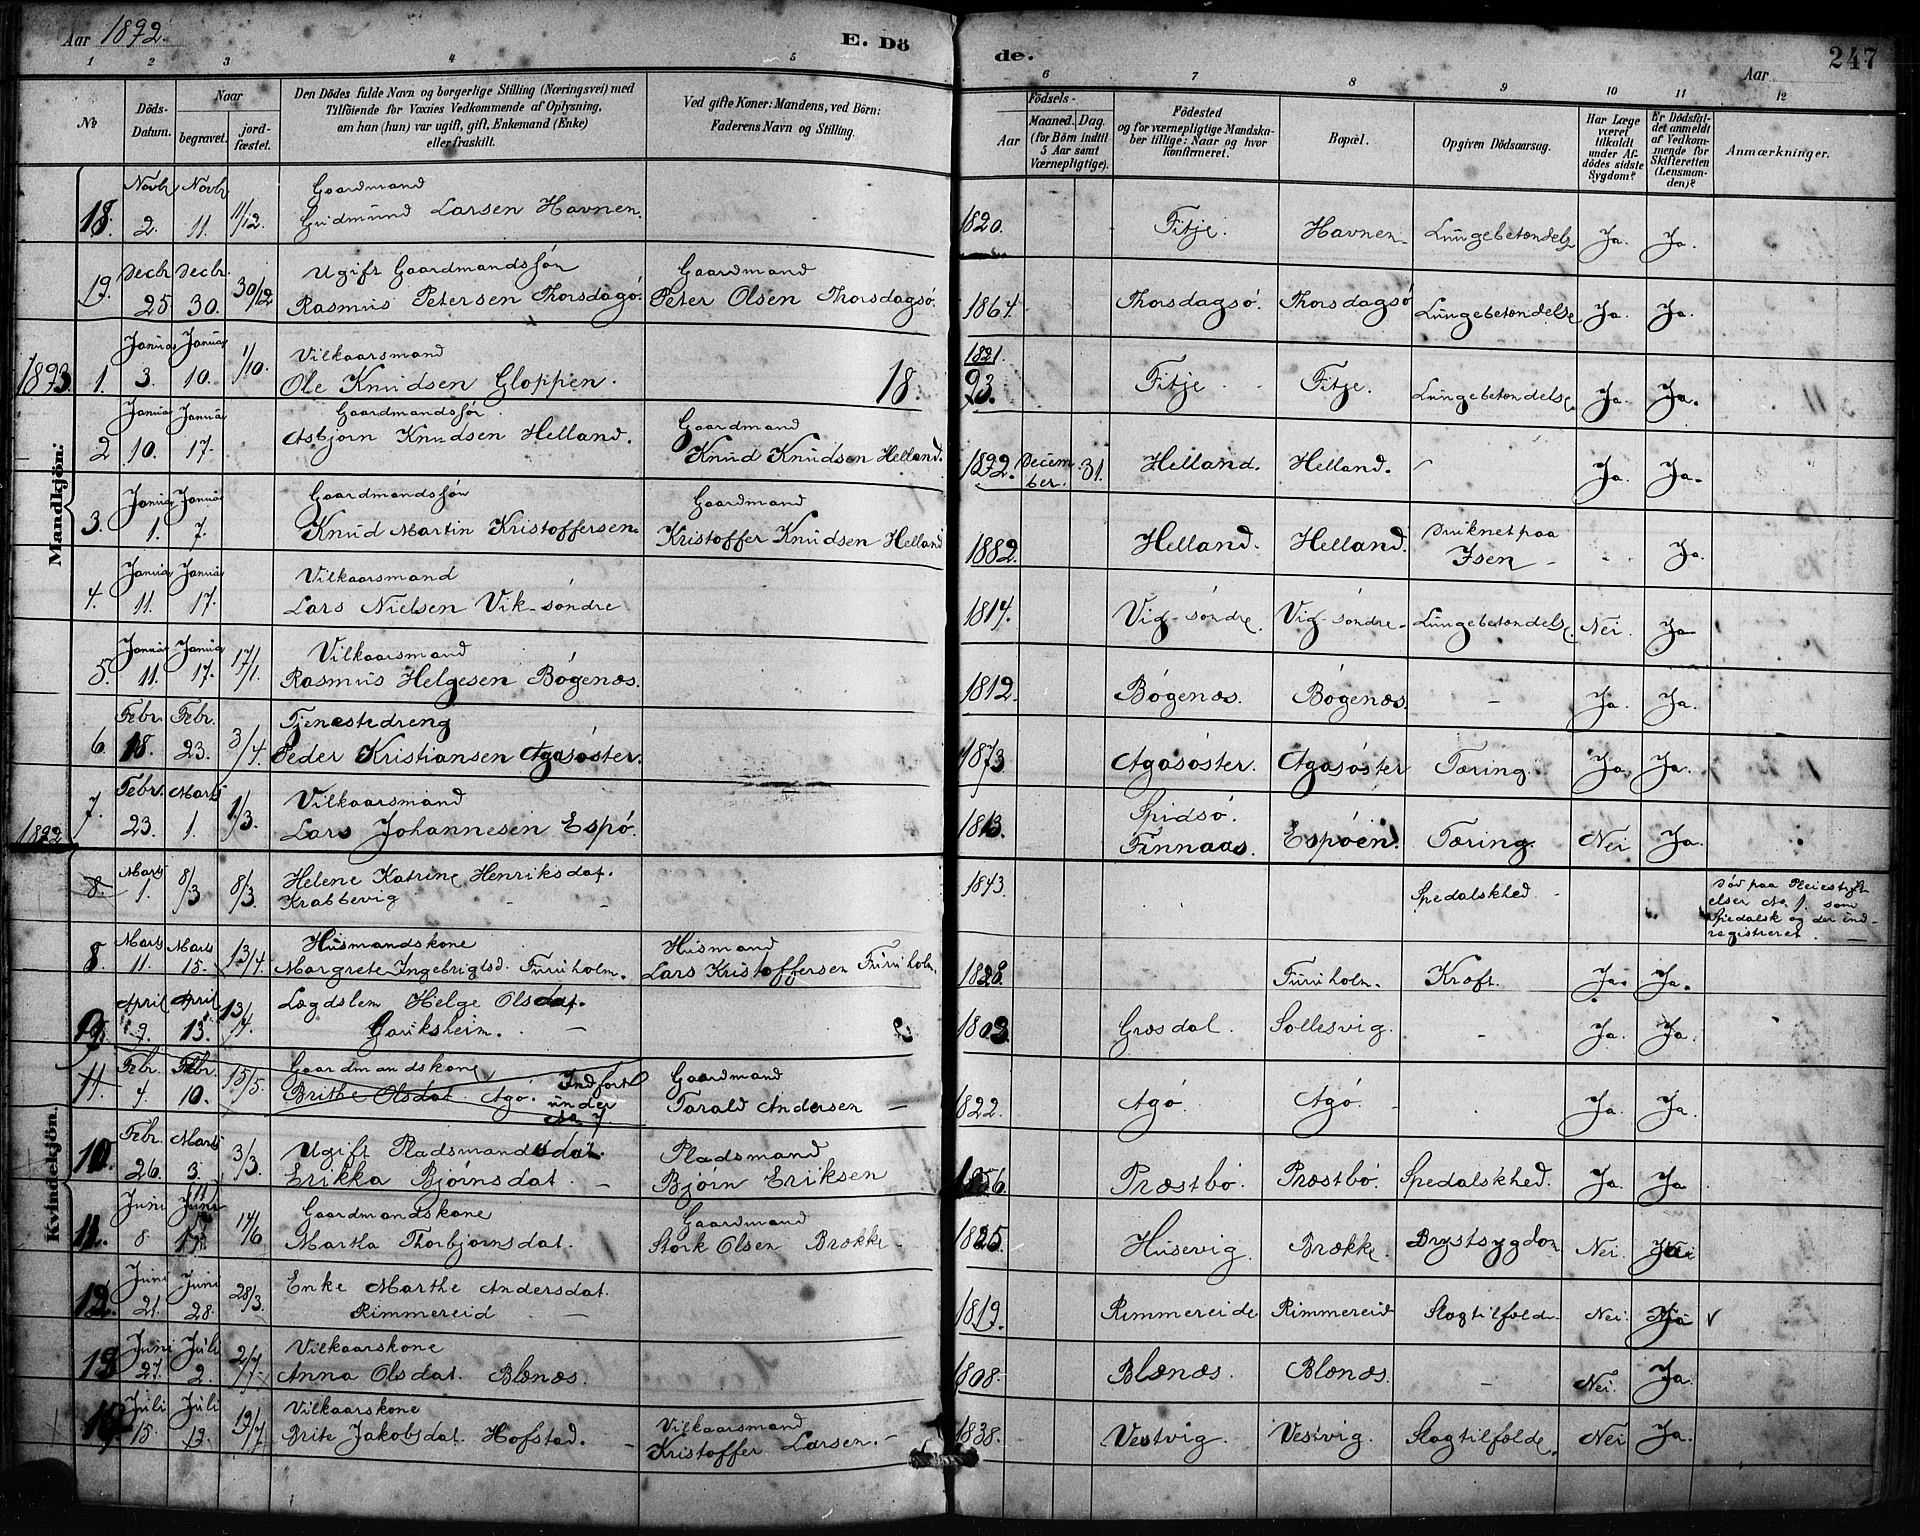 Aar 1892.
E. Dö de.
Aar
247
1 2 3 4 5 6 7 8 9 10 11 12
No
Döds-Datum.
Naar begravet. jord-fæstet.
Den Dödes fulde Navn og borgerlige Stilling (Næringsvei) med
Tilföiende for Voxnes Vedkommende af Oplysning,
om han (hun) var ugift, gift, Enkemand (Enke)
eller fraskilt.
Ved gifte Koner: Mandens, ved Börn:
Faderens Navn og Stilling.
Födsels-
Aar
Maaned. Dag.
(for Börn indtil
5 Aar samt
Værnepligtige).
Födested
og for værnepligtige Mandska-
ber tillige: Naar og hvor
konfirmeret.
Bopæl.
Opgiven Dödsaarsag.
Har Læge
været
tilkaldt
under Af-
dödes sidste
Sygdom?
Er Dödsfal-
det anmeldt
af Vedkom-
mende for
Skifteretten
(Lensman-
den)?
Anmærkninger.
Mandkjön:
18. Novbr 2. Novbr 11. 11/12 Gaardmand
Gudmund Larsen Havnen. 1820. Fitje. Havnen Lungebetændelse Ja. Ja.
19. Decbr 25. Decbr. 30. 30/12 Ugift Gaardmandssøn
Rasmus Petersen Thorsdagsø. Gaardmand
Peter Olsen Thorsdagsø. 1864. Thorsdagsø. Thorsdagsø Lungebetændelse Ja. Ja.
1893. 1. Januar 3. Januar 10. 1/10. Vilkaarsmand
Ole Knudsen Gloppen. 18 93. 1821. Fitje Fitje. Lungebetændelse. Ja. Ja.
2 Januar 10. Januar 17. Gaardmandssøn
Asbjørn Knudsen Helland. Gaardmand
Knud Knudsen Helland. 1892. December. 31. Helland. Helland. Ja. Ja.
3. Januar 1. Januar 7. Gaardmandssøn
Knud Martin Kristoffersen Gaardmand
Kristoffer Knudsen Helland 1882. Helland. Helland. Druknet paa
Isen Ja.
4. Januar 11. Januar 17. Vilkaarsmand
Lars Nielsen Vik-søndre 1814. Vig-søndre. Vig-søndre. Lungebetændelse. Nei. Ja
5. Januar 11. Januar 17. 17/1. Vilkaarsmand
Rasmus Helgesen Bøgenæs. 1812. Bøgenæs. Bøgenæs. Ja. Ja.
6. Febr. 18. Febr. 23. 3/4. Tjenestedreng
Peder Kristiansen Agasøster. 1873 Agasøster. Agasøster Tæring. Ja. Ja.
7. Febr. 23. Marts 1. 1/3. Vilkaarsmand
Lars Johannesen Espø. 1813. Spidsø.
Finnaas. Espøen. Tæring. Nei Ja.
1892
Kvindekjön.
8. Marts 1. 8/3 8/3. Helene Katrine Henriksdat.
Krabbevig 1843. Spedalskhed. Død paa Pleiestift-
elser No. 1. som
Spedalsk og der ind-
registreret.
8. Marts 11. Marts 15. 13/4. Husmandskone
Margrete Ingebrigtsd. Furuholm. Husmand
Lars Kristoffersen Furuholm. 1828. Furuholm. Kræft. Ja. Ja.
9. April 9. April 13. 13/4. Lægdslem Helge Olsdat.
Gauksheim. Græsdal. Sollesvig. Ja. Ja.
11. Febr. 4. Febr. 10. 15/5. Gaardmandskone
Brithe Olsdat. Agø. Indført
under
No 7. Gaardmand
Tarald Andersen 1822. Agø. Agø. Ja. Ja.
10. Febr. 26. Marts 3. 3/3. Ugift Pladsmandsdat.
Erikka Bjørnsdat. Pladsmand
Bjørn Eriksen 1856. Præstbø. Præstbø. Spedalskhed. Ja. Ja
11. Juni 8. Juni 14/6 Gaardmandskone
Martha Thorbjørnsdat. Gaardmand
Stork Olsen Brække 1825. Husevig. Brække. Brystsygdom Nei. Ja
12. Juni 21. Juni 28. 28/3. Enke Marthe Andersdat.
Rimmereid 1819. Rimmereide Rimmereid Slagtilfælde Nei. Ja
13 Juni 27. Juli 2. 2/7. Vilkaarskone
Anna Olsdat. Blænæs. 1808. Blænæs. Blænæs. Nei. Ja.
Juli 15. Juli 19. 19/7. Vilkaarskone
Brite Jakobsdat. Hofstad. Vilkaarsmand
Kristoffer Larsen. 1838. Vestvig. Vestvig. Slagtilfælde. Nei Ja.